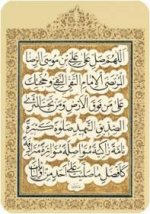 اللهم صل علی علی بن موسی الرضا
المرتضی الامام التقی النقی و حجتک
علی من فوق الارض و من تحت الثری
الصدیق الشهید صلوة کثیرة
تامة زاکیة متواصلة متواترة مترادفة
کافضل ما صلیت علی احد من اولیائک